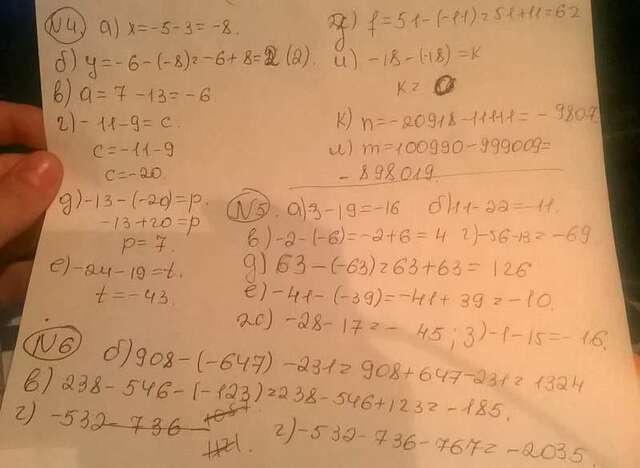 №4. а) x=-5-3=-8.
б) y=-6-(-8)=-6+8=2 (2).
в) a=7-13=-6
г) -11-9=c.
c=-11-9
c=-20.
д) -13-(-20)=p.
-13+20=p
p=7.
е) -24-19=t.
t=-43.
ж) f=51-(-11)=51+11=62
и) -18-(-18)=k
k=0
к) n=-20918-11111=-9807
л) m=100990-999009=
-898019.
№5. а) 3-19=-16 б) 11-22=-11.
в) -2-(-6)=-2+6=4 г) -56-13=-69
д) 63-(-63)=63+63=126
е) -41-(-39)=-41+39=-10.
ж) -28-17=-45; з) -1-15=-16.
№6 б) 908-(-647)-231=908+647-231=1324
в) 238-546-(-123)=238-546+123=-185.
г) -532-736
г) -532-736-767=-2035.